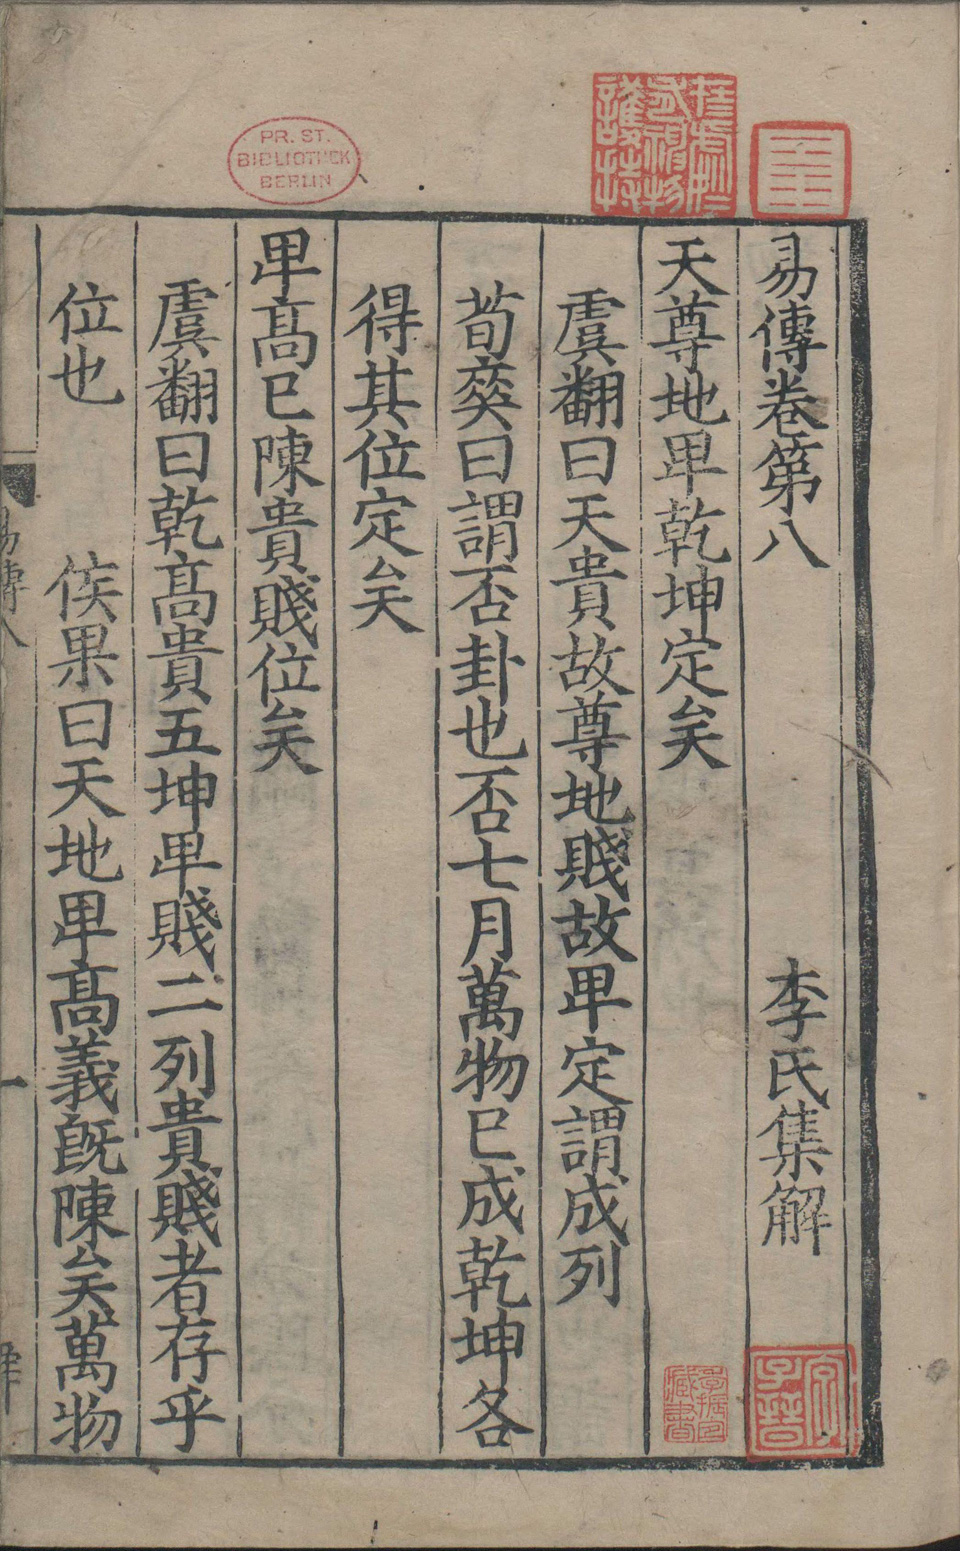 易傳卷第八 李氏集解
天尊地卑乾坤定矣
虞翻曰天貴故尊地賤故卑定謂成列
荀爽曰謂否卦也否七月萬物已成乾坤各
得其位定矣
卑高已陳貴賤位矣
虞翻曰乾高貴五坤卑賤二列貴賤者存乎
位也 侯果曰天地卑高義既陳矣萬物
易傳八
一
PR. ST.
BIBLIOTHEK
BERLIN